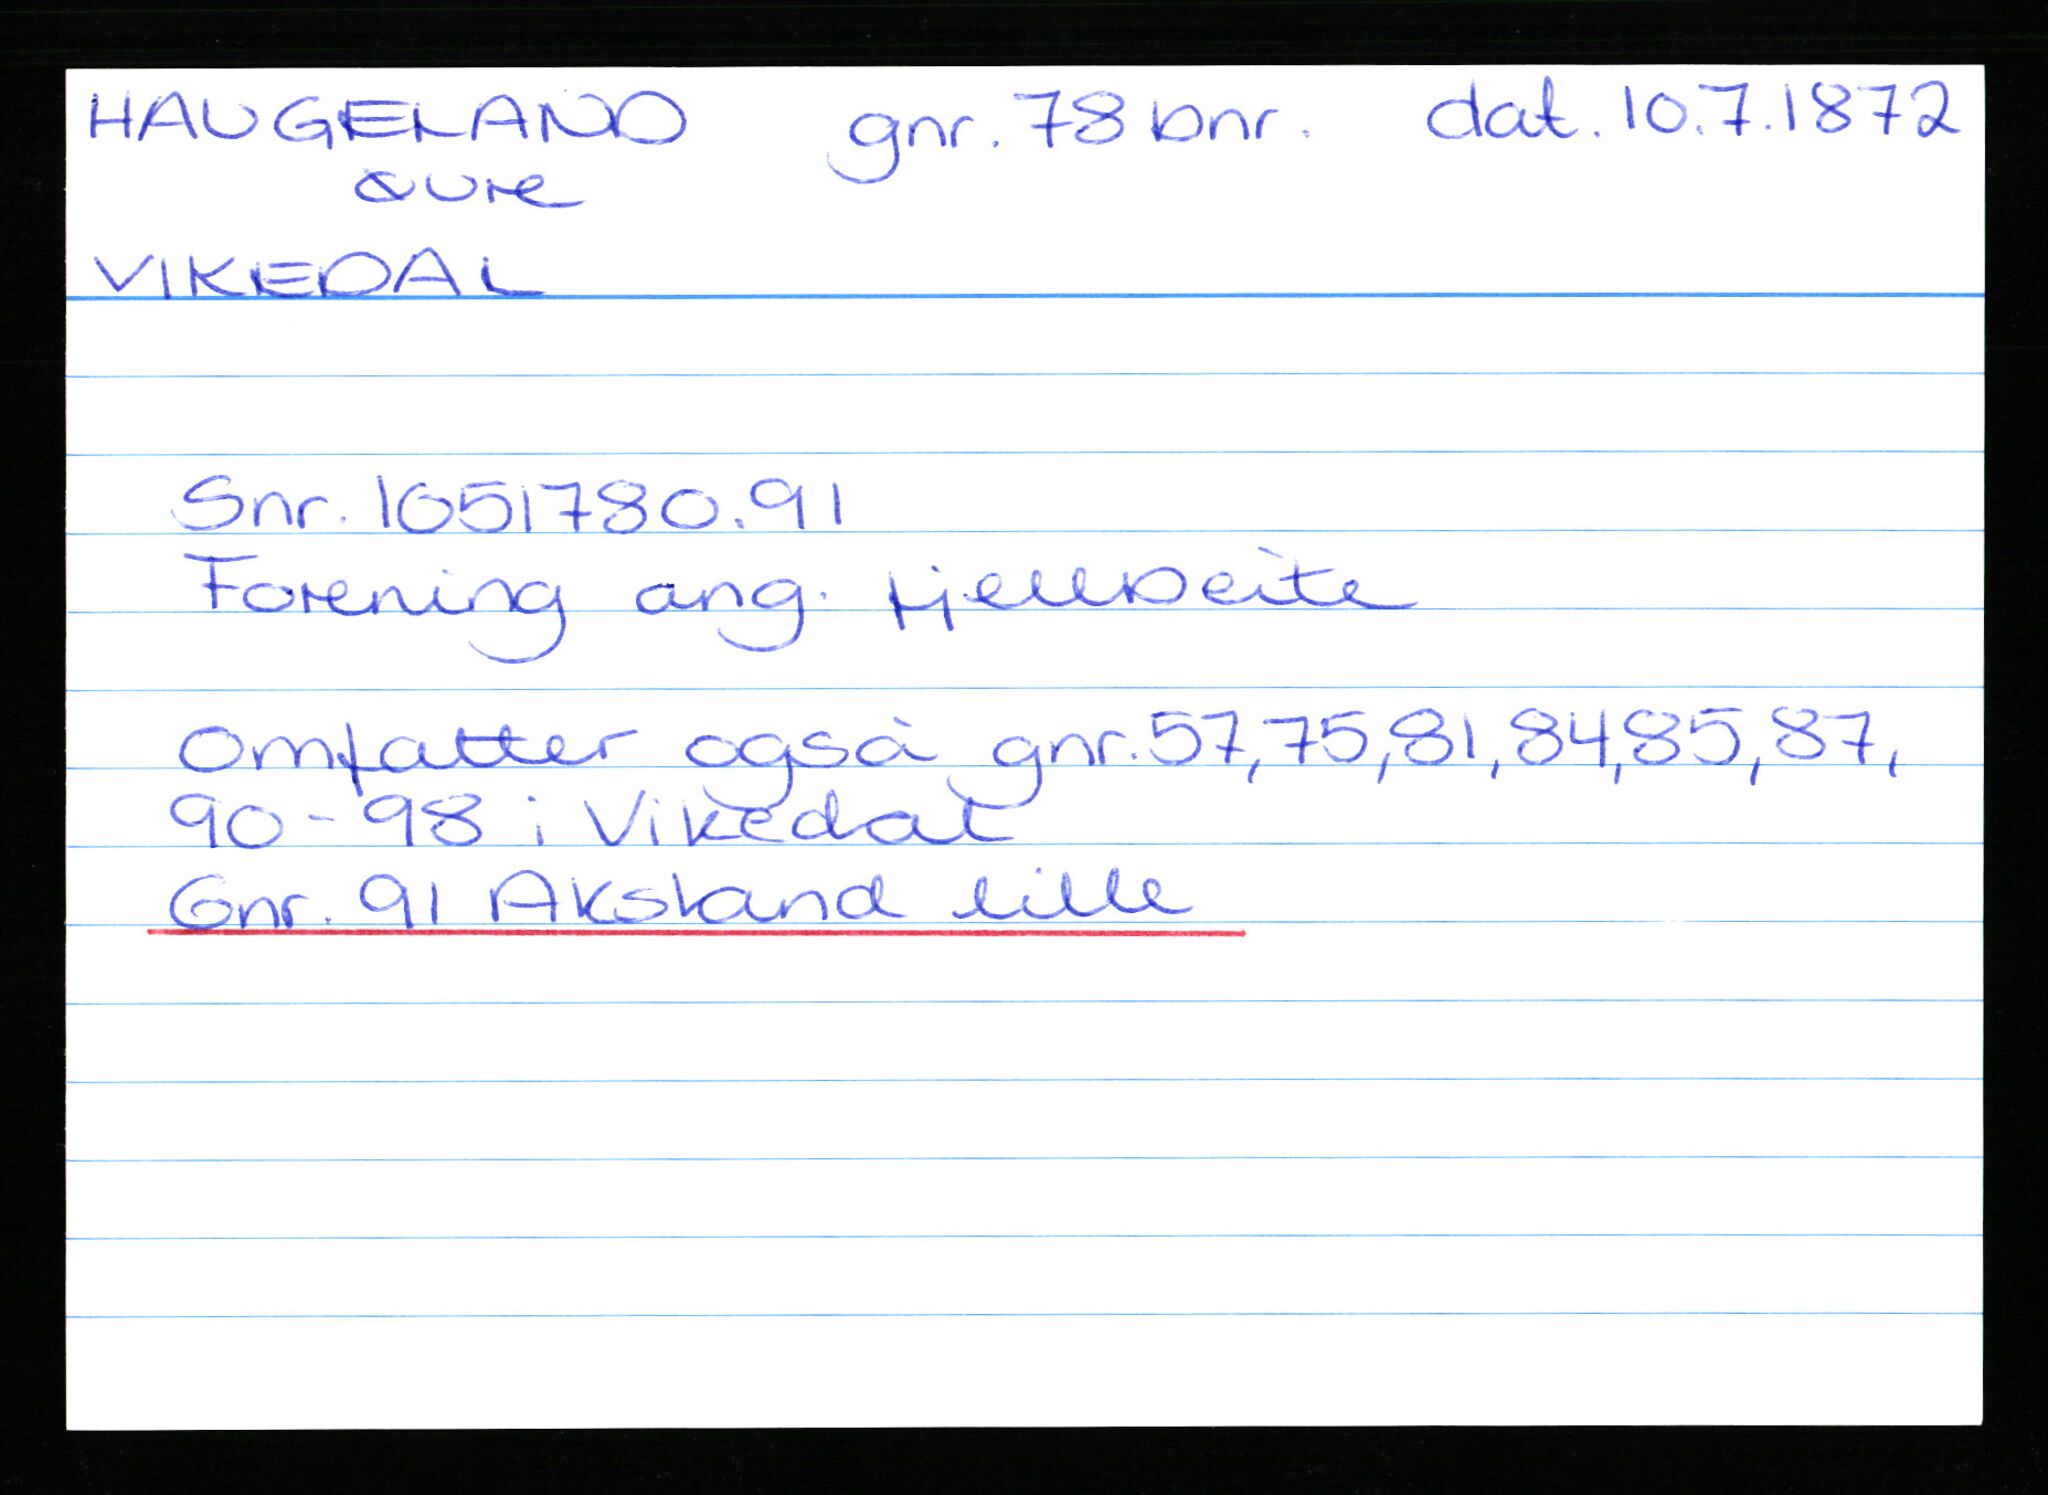 HAUGELAND gnr. 78 bnr. dat. 10.7.1872
øvre
VIKEDAL
Snr. 1051780.91
Forening ang. fjellbeite
Omfatter også gnr. 57, 75, 81, 84, 85, 87,
90-98 i Vikedal
Gnr. 91 Aksland lille